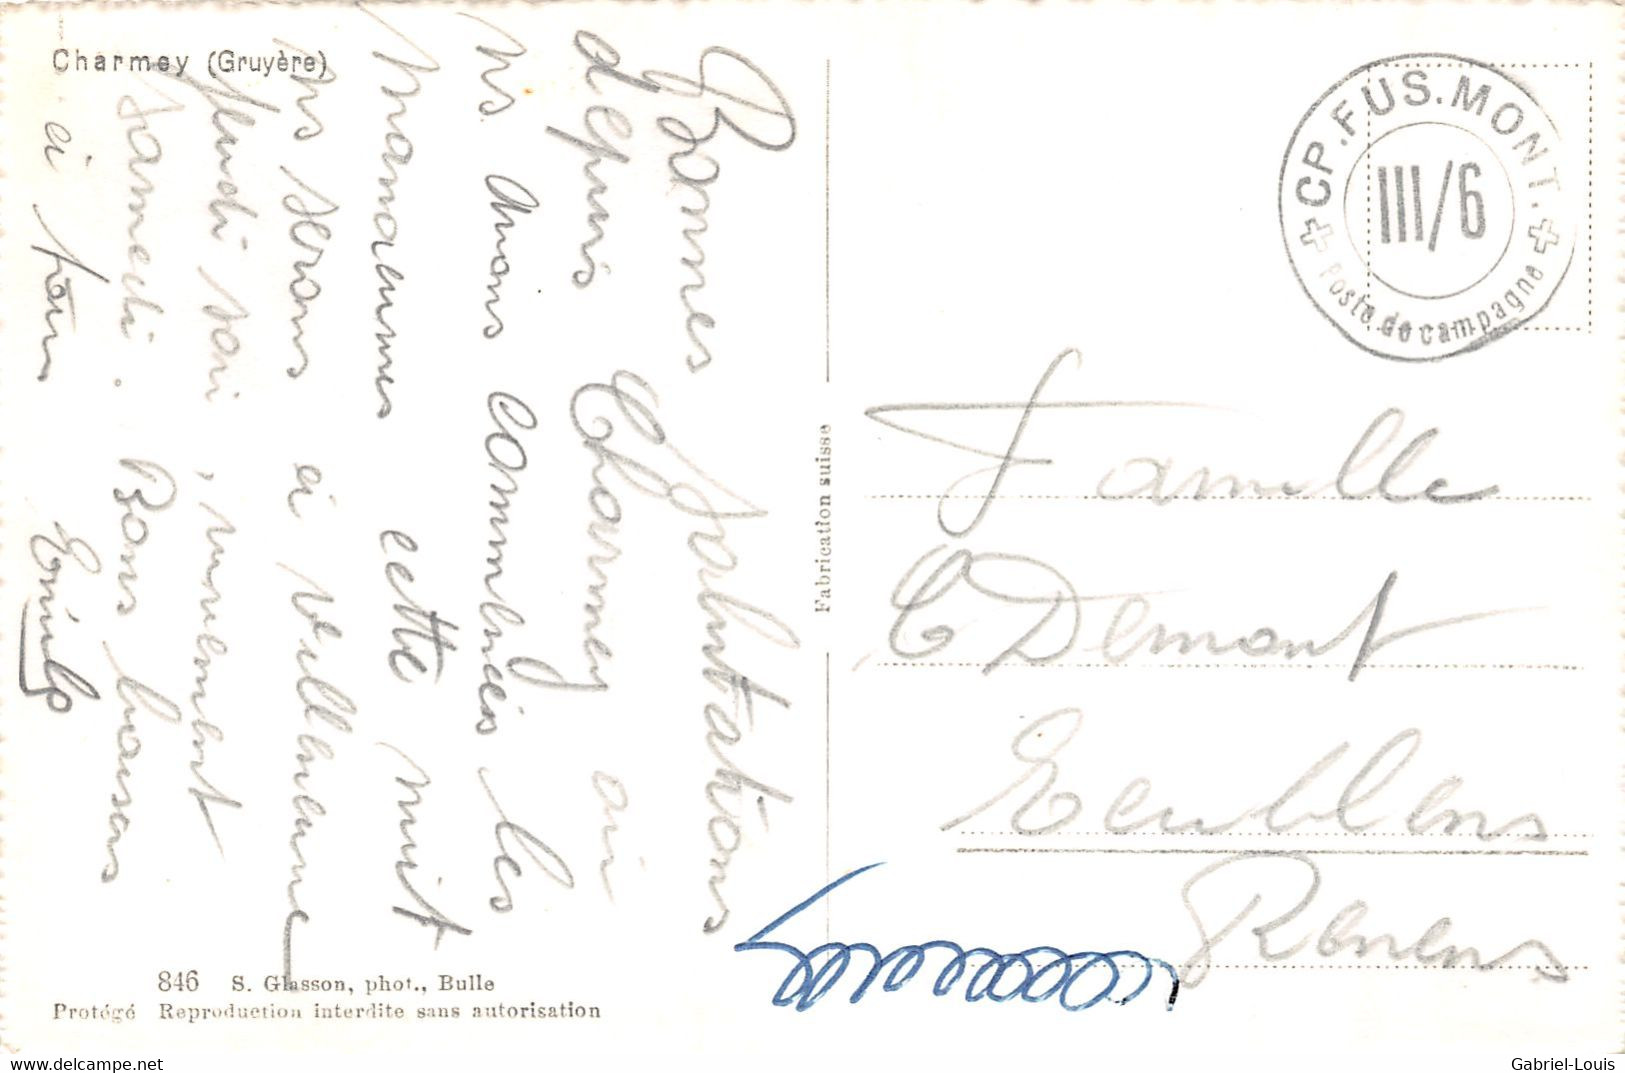 Charmey (Gruyère)
Bonnes Salutations
depuis Charmey où
ns avons commencées les
manœuvres cette nuit
ns serons à Villeneuve
Jeudi soir,
samedi. Bons baisers
à tous
846 S. Glasson, phot., Bulle
Protégé Reproduction interdite sans autorisation
Fabrication suisse
CP. FUS. MONT.
III/6
Poste de campagne
Famille
C Demont
Ecublens
Renens
www.delcampe.net
Gabriel-Louis